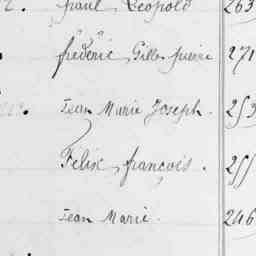 2. paul Léopold 263
fréderic Gilles pierre 271
Jean Marie Joseph. 253
Félix françois. 255
Jean Marie. 246